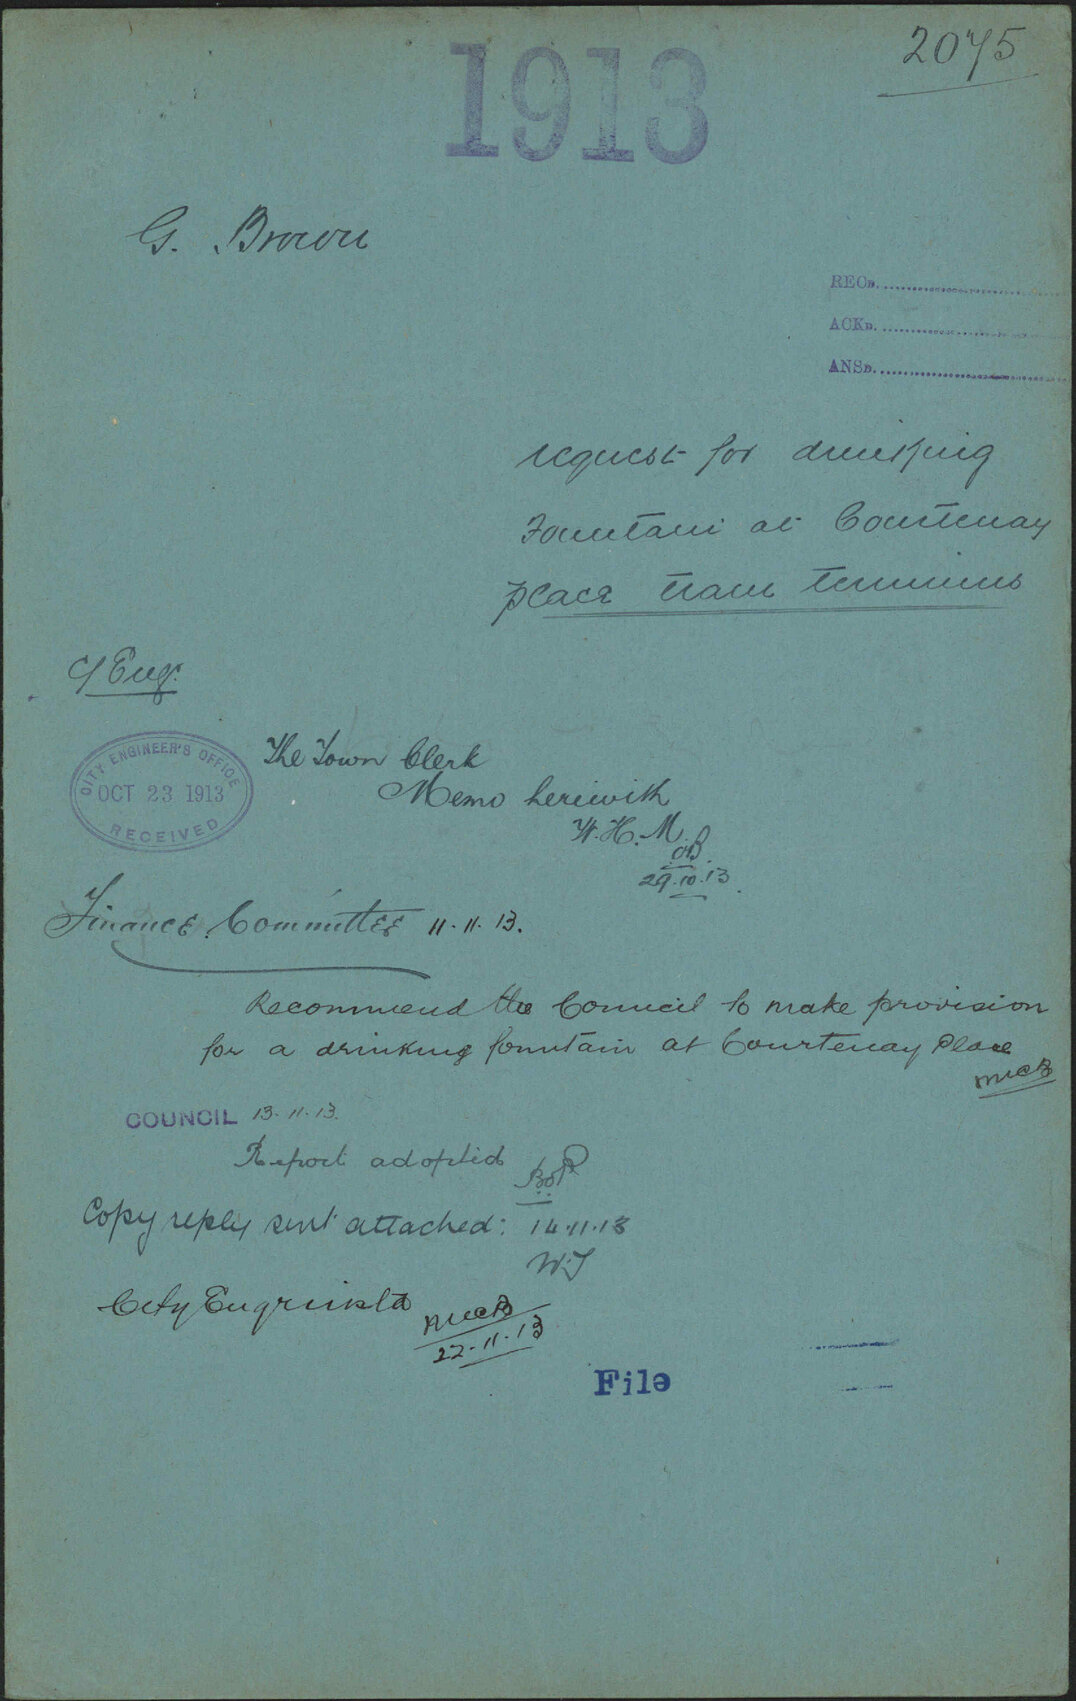 2075
1913
G. Brown
RECD.
ACKD.
ANSD.
request for drinking
Fountain at Courtenay
place tram terminus
C/Engr.
CITY ENGINEER'S OFFICE
OCT 23 1913
RECEIVED
The Town Clerk
Memo herewith
W. H. M.
29.10.13.
Finance Committee 11.11.13.
Recommend the Council to make provision
for a drinking fountain at Courtenay Place
COUNCIL 13.11.13.
Report adopted
Copy reply sent attached: 14.11.13
City Engr
22-11-13
File